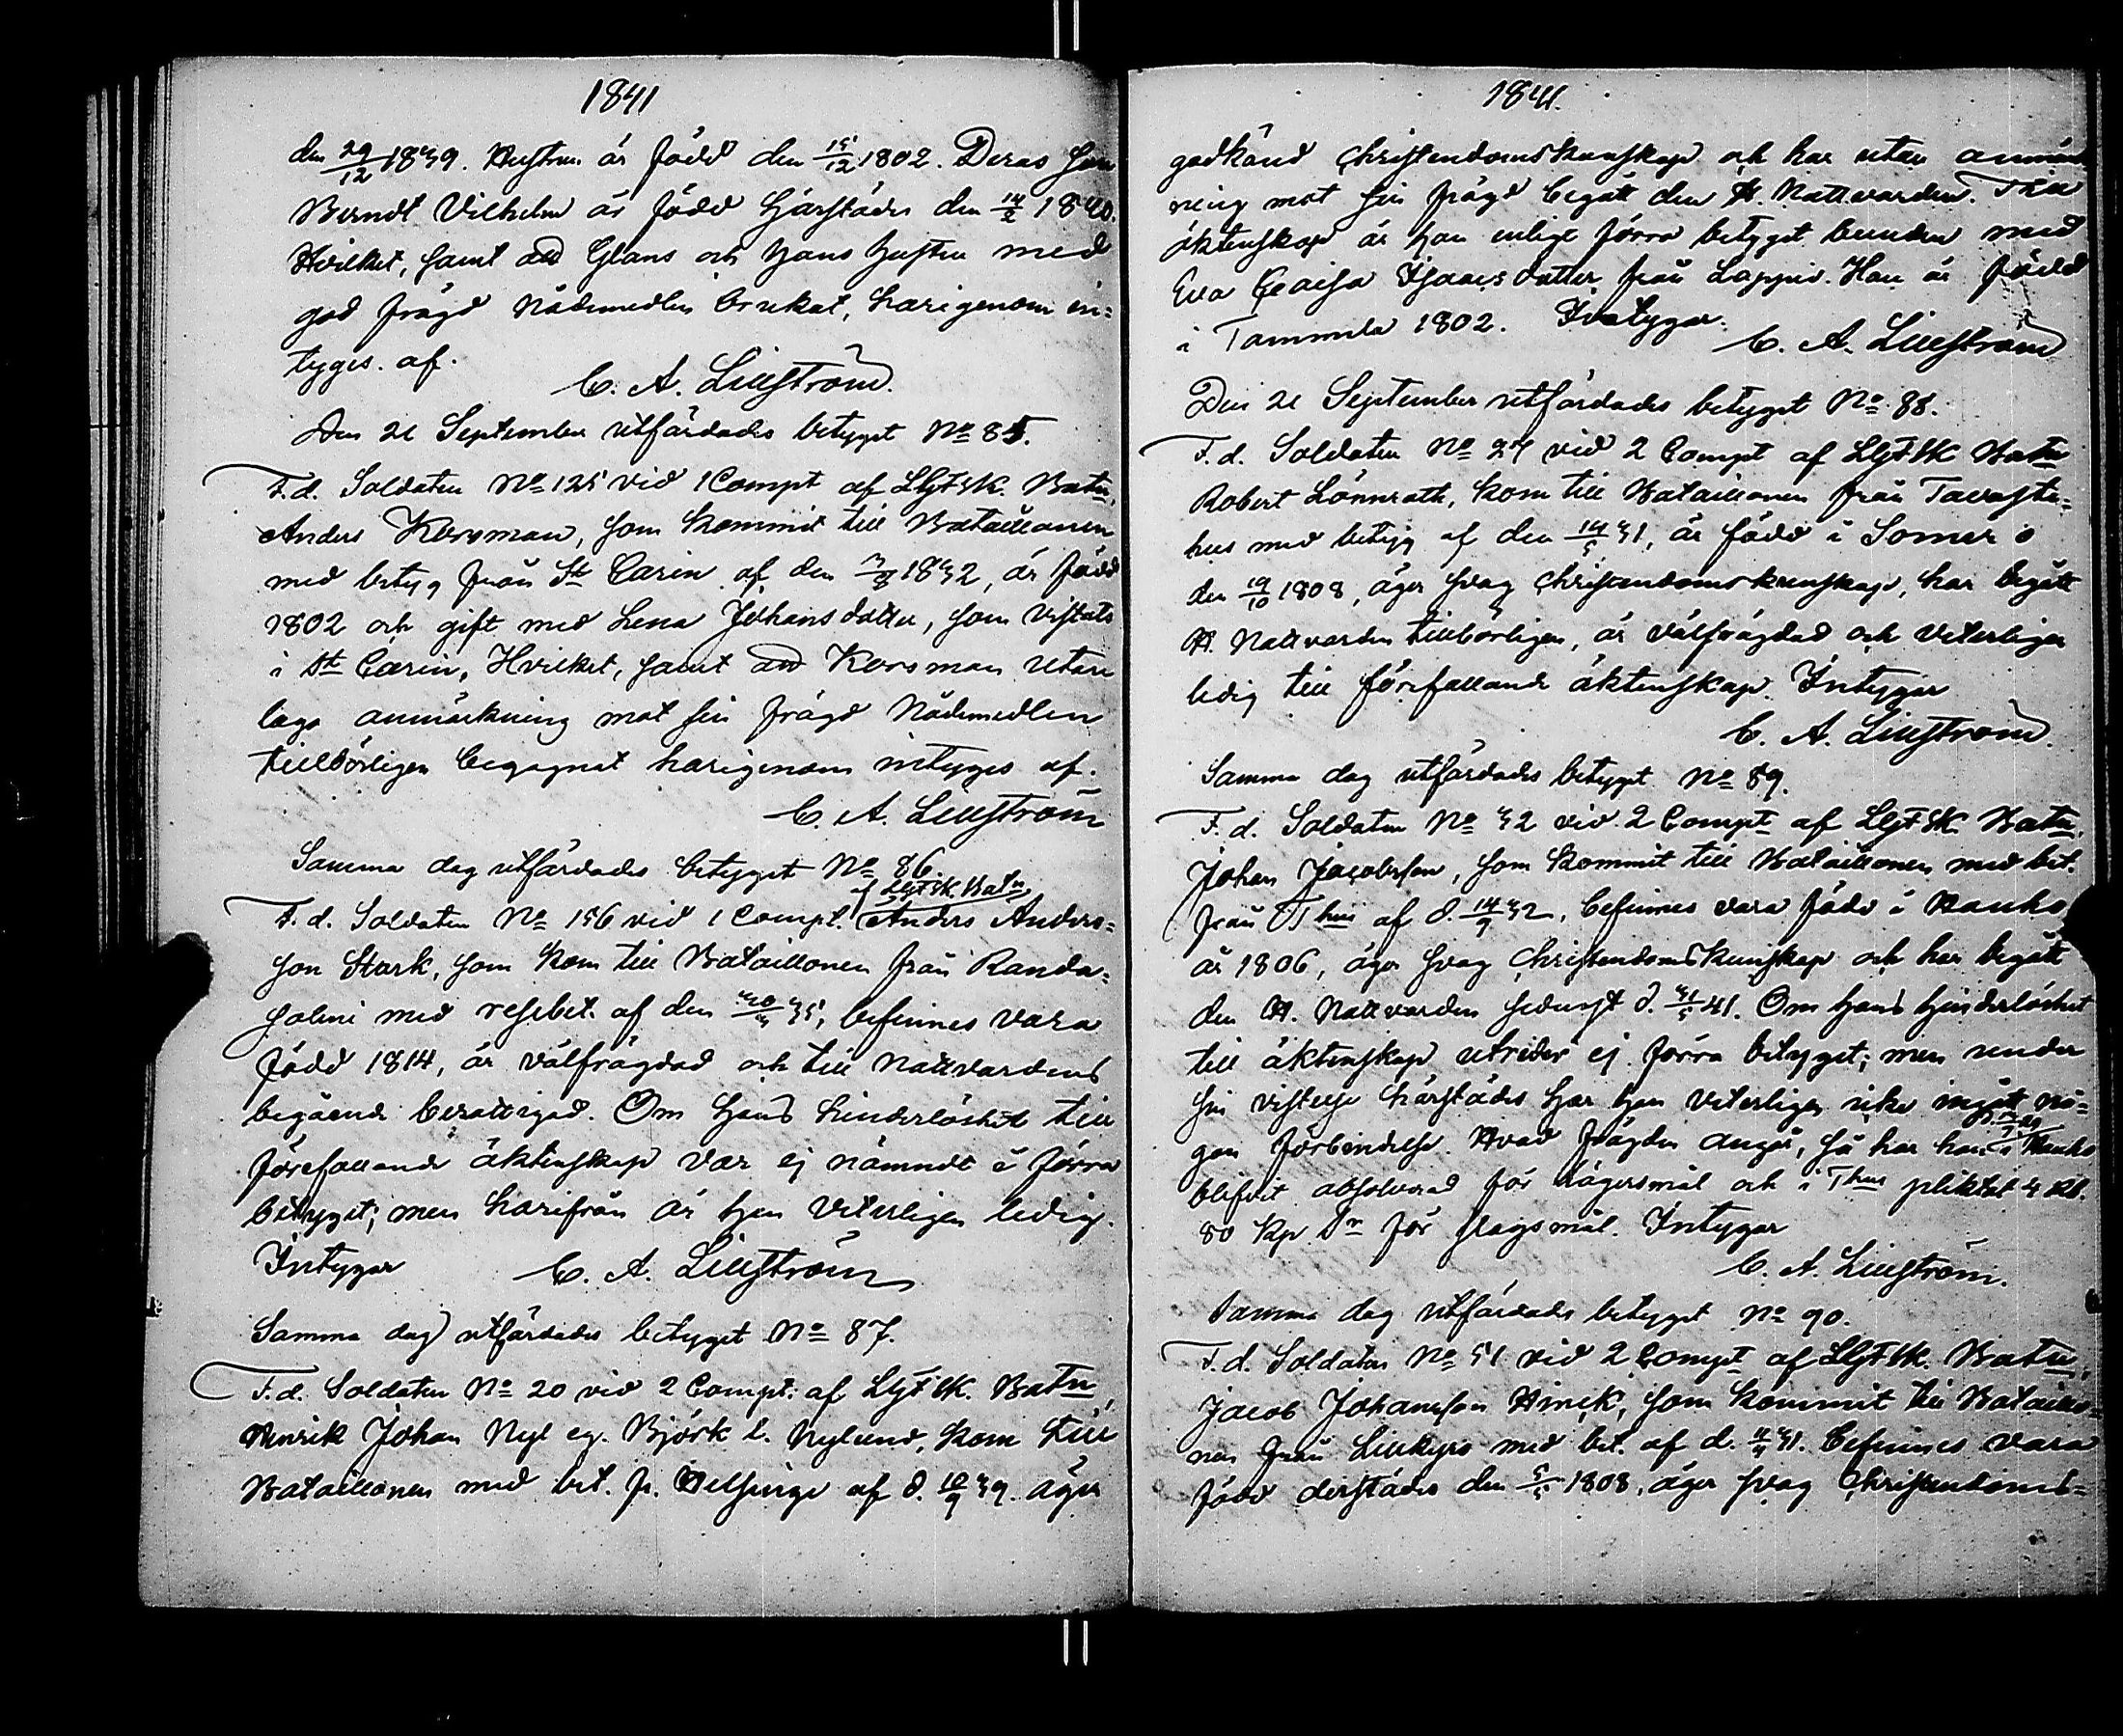 1841
den 29/12 1839. Hustrun är född den 15/12 1802. Deras son
Berndt Vilhelm är född härstädes den 14/2 1840.
Hvilket, samt att Glans och hans hustru med
god frägd Nådemedlen brukat, härigenom in-
tyges. af.
C. A. Lillström.
Den 21 September utfärdades betyget No 85.
F.d. Soldaten No 125 vid 1 Compt af LLgFSk. Batn,
Anders Korsman, som kommit till Bataillonen
med betyg från St Carin af den 1832, är född
1802 och gift med Lena Johansdotter, som vistats
i St Carin, Hvilket, samt att Korsman utan
laga anmärkning mot sin frägd Nådemedlen
tillbörligen begagnat härigenom intyges af.
C. A. Lillström
Samma dag utfärdades betyget No 86.
af LLgFSk. Batn
F.d. Soldaten No 156 vid 1 Compt. Anders Anders-
son Stark, som kom till Bataillonen från Randa-
salmi med resebet. af den 35, befinnes vara
född 1814, är välfrägdad och till Nattvardens
begående berättigad. Om hans hinderlöshet till
förefallande äktenskap var ej nämndt i förra
betyget; men härifrån är han veterligen ledig.
Intygar C. A. Lillström
Samma dag utfärdades betyget No 87.
F.d. Soldaten No 20 vid 2 Compt. af LLgFSk. Batn,
Henrik Johan Nyl eg. Björk l. Nylund, kom till
Bataillonen med bet. fr. Helsinge af d. 10/9 39. äger
1841.
godkänd Christendomskunskap och har utan anmärk
ning mot sin frägd begått den H. Nattvarden. Till
äktenskap är han enligt förra betyget bunden med
Eva Cajsa Isaacsdotter från Lappvi. Han är född
i Tammela 1802. Intygar.
C. A. Lillström
Den 21 September utfärdades betyget No 88.
F.d. Soldaten No 24 vid 2 Compt af LLgFSk Batn
Robert Lönnroth, kom till Bataillonen från Tavaste-
hus med betyg af den 14/5 31, är född i Somero
den 19/10 1808, äger svag Christendomskunskap, har begått
H. Nattvarden tillbörligen, är välfrägdad och veterligen
ledig till förefallande äktenskap. Intygar
C. A. Lillström.
Samma dag utfärdades betyget No 89.
F.d. Soldaten No 32 vid 2 Compt af LLgFSk. Batn,
Johan Jacobsson, som kommit till Bataillonen med bet.
från THus af d. 14/7 32, befinnes vara född i Hauho
år 1806, äger svag Christendomskunskap och har begått
den H. Nattvarden sednast d. 31/5 41. Om hans hinderlöshet
till äktenskap utreder ej förra betyget; men under
sin vistelse härstädes har han veterligen icke ingått nå-
gon förbindelse. Hvad frägden angår, så har han i Hauho
blifvit absolverad för lägersmål och i THus pliktat 4 Rb.
80 kp Sr för slagsmål. Intygar
C. A. Lillström.
Samma dag utfärdades betyget No 90.
F.d. Soldaten No 51 vid 2 Compt af LLgFSk. Batn,
Jacob Johansson Hinck, som kommit till Bataillo-
nen från Lillkyro med bet. af d. 31. befinnes vara
född derstädes den 5/5 1808, äger svag Christendoms-